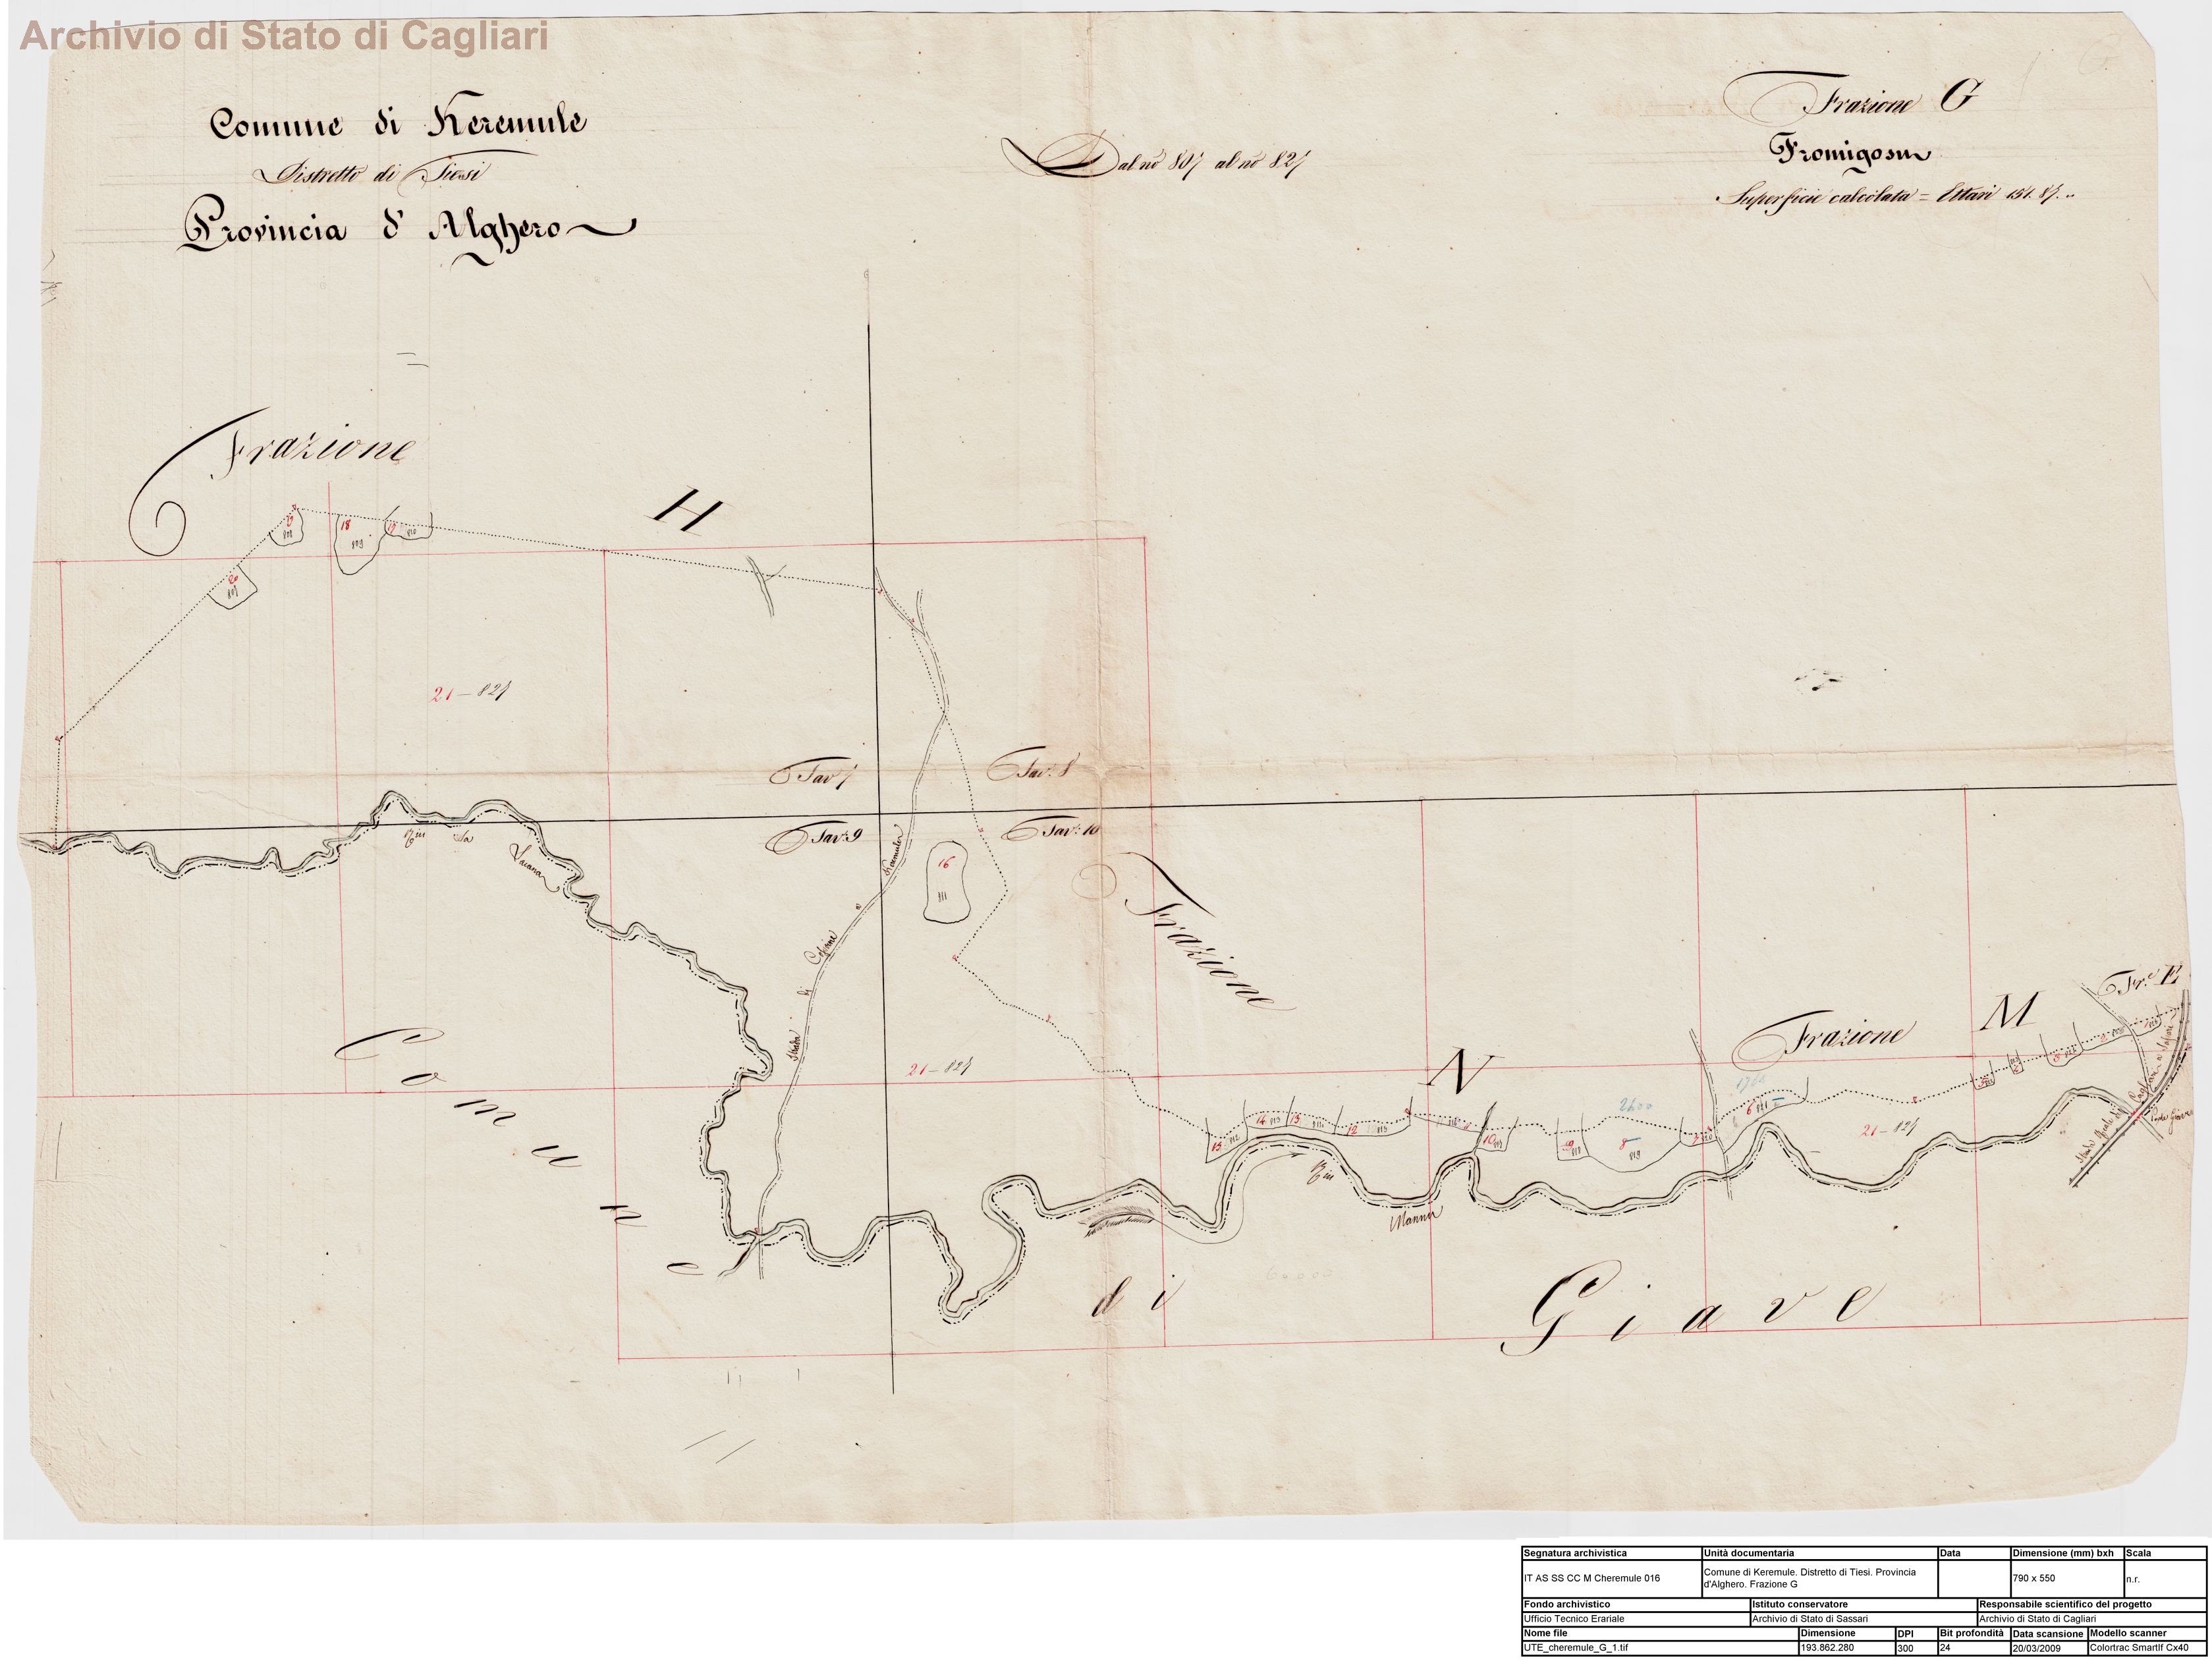 Archivio di Stato di Cagliari
Comune di Keremule
Distretto di Tiesi
Provincia d' Alghero
Dal nº 807 al nº 827
Frazione G
Fromigosu
Superficie calcolata = Ettari 151. 87. ..
Frazione
H
18
809
810
808
20
807
21 - 827
Tav 7
Tav: 8
Tav: 9
Tav: 10
Riu Sa
16
811
Strada di Cossoine Keremule
Frazione
N
Frazione
M
Fr.e E
21 - 827
15
14
13
12
10
9
8
819
6
2400
21 - 827
Riu
Mannu
Strada Reale da Cagliari a Sassari
Comune
di
Giave
Segnatura archivistica
Unità documentaria
Data
Dimensione (mm) bxh
Scala
IT AS SS CC M Cheremule 016
Comune di Keremule. Distretto di Tiesi. Provincia
d'Alghero. Frazione G
790 x 550
n.r.
Fondo archivistico
Istituto conservatore
Responsabile scientifico del progetto
Ufficio Tecnico Erariale
Archivio di Stato di Sassari
Archivio di Stato di Cagliari
Nome file
Dimensione
DPI
Bit profondità
Data scansione
Modello scanner
UTE_cheremule_G_1.tif
193.862.280
300
24
20/03/2009
Colortrac Smartlf Cx40